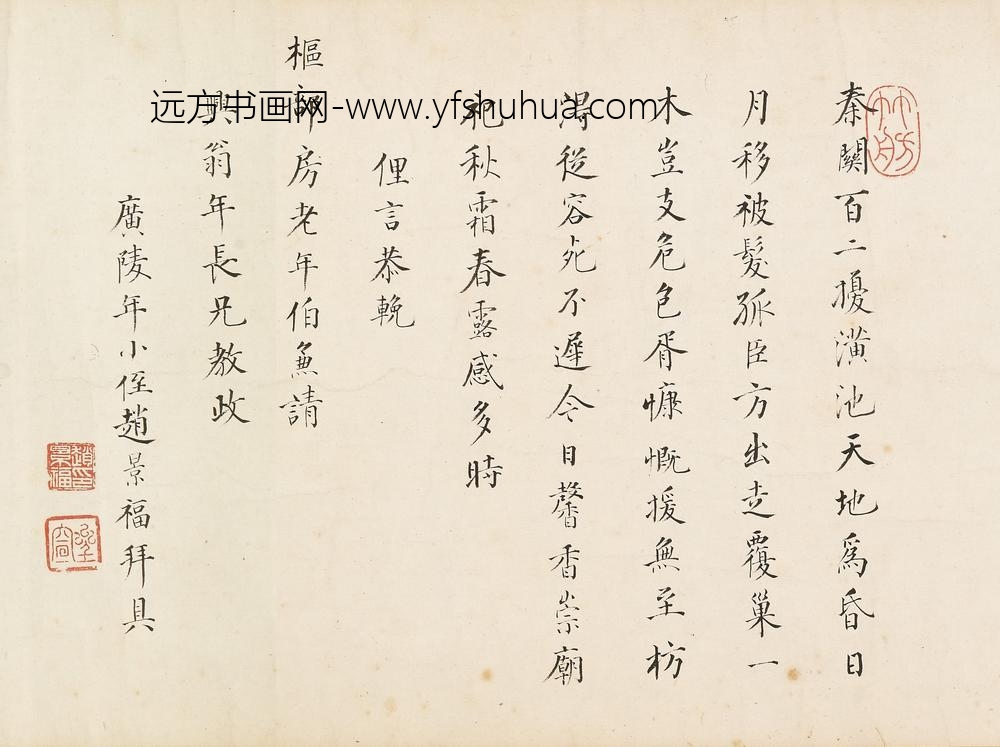 秦關百二擾潢池天地爲昏日
月移被髮孤臣方出走覆巢一
木豈支危包胥慷慨援無至枋
得從容死不遲今日馨香崇廟
祀秋霜春露感多時
俚言恭輓
樞部房老年伯兼請
興翁年長兄教政
廣陵年小侄趙景福拜具
远方书画网-www.yfshuhua.com
趙印景福